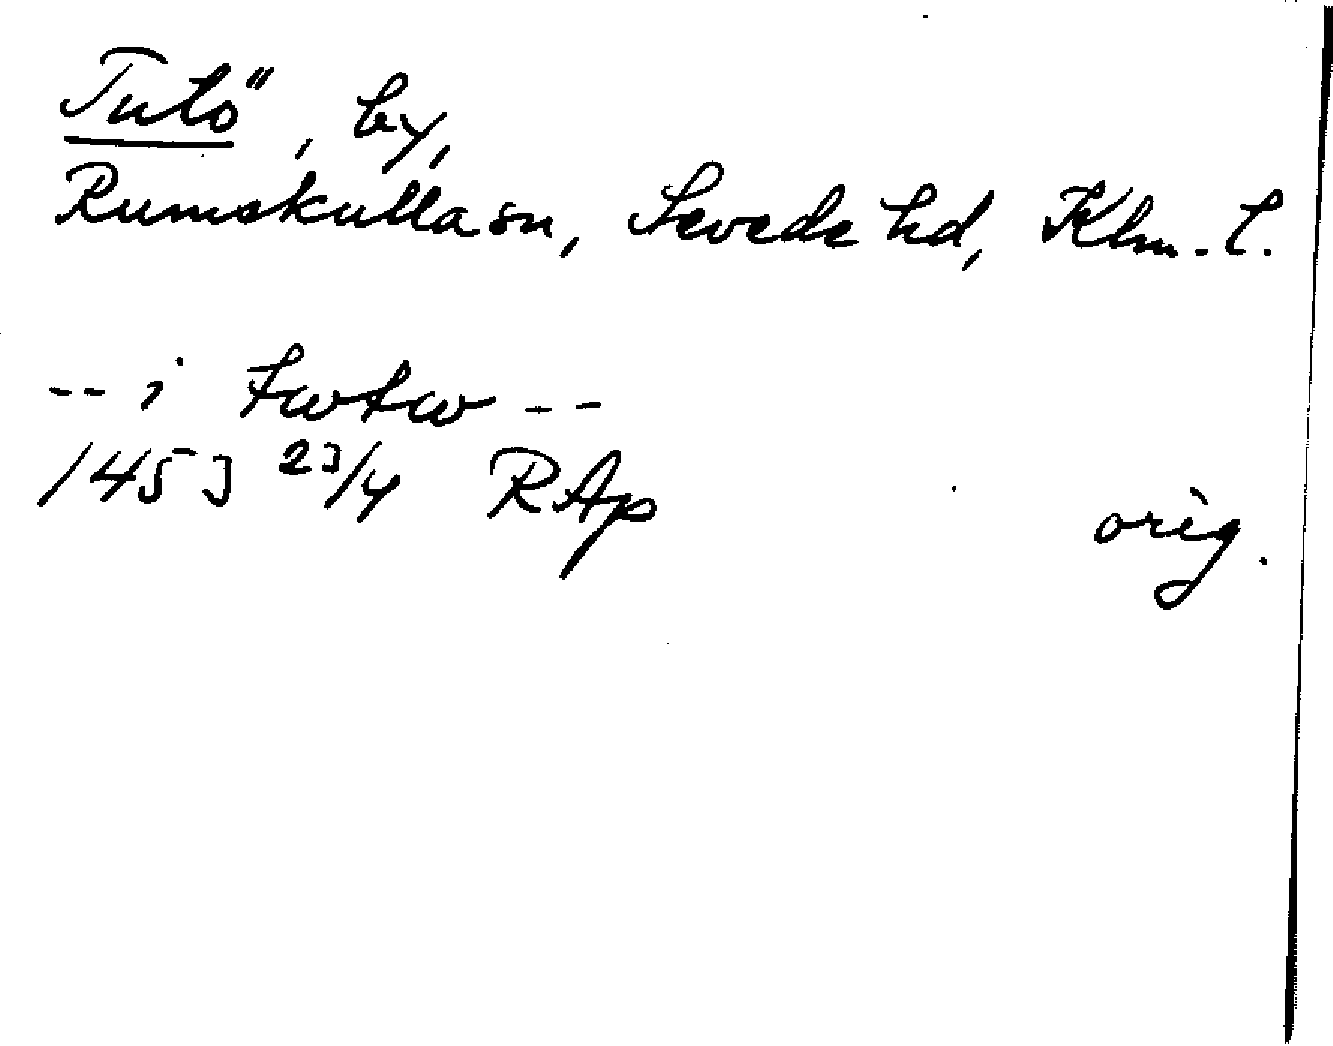 Tutö, by,
Rumskulla sn, Sevede hd, Klm. l.
-- i twtw --
1453 23/4 RAp orig.